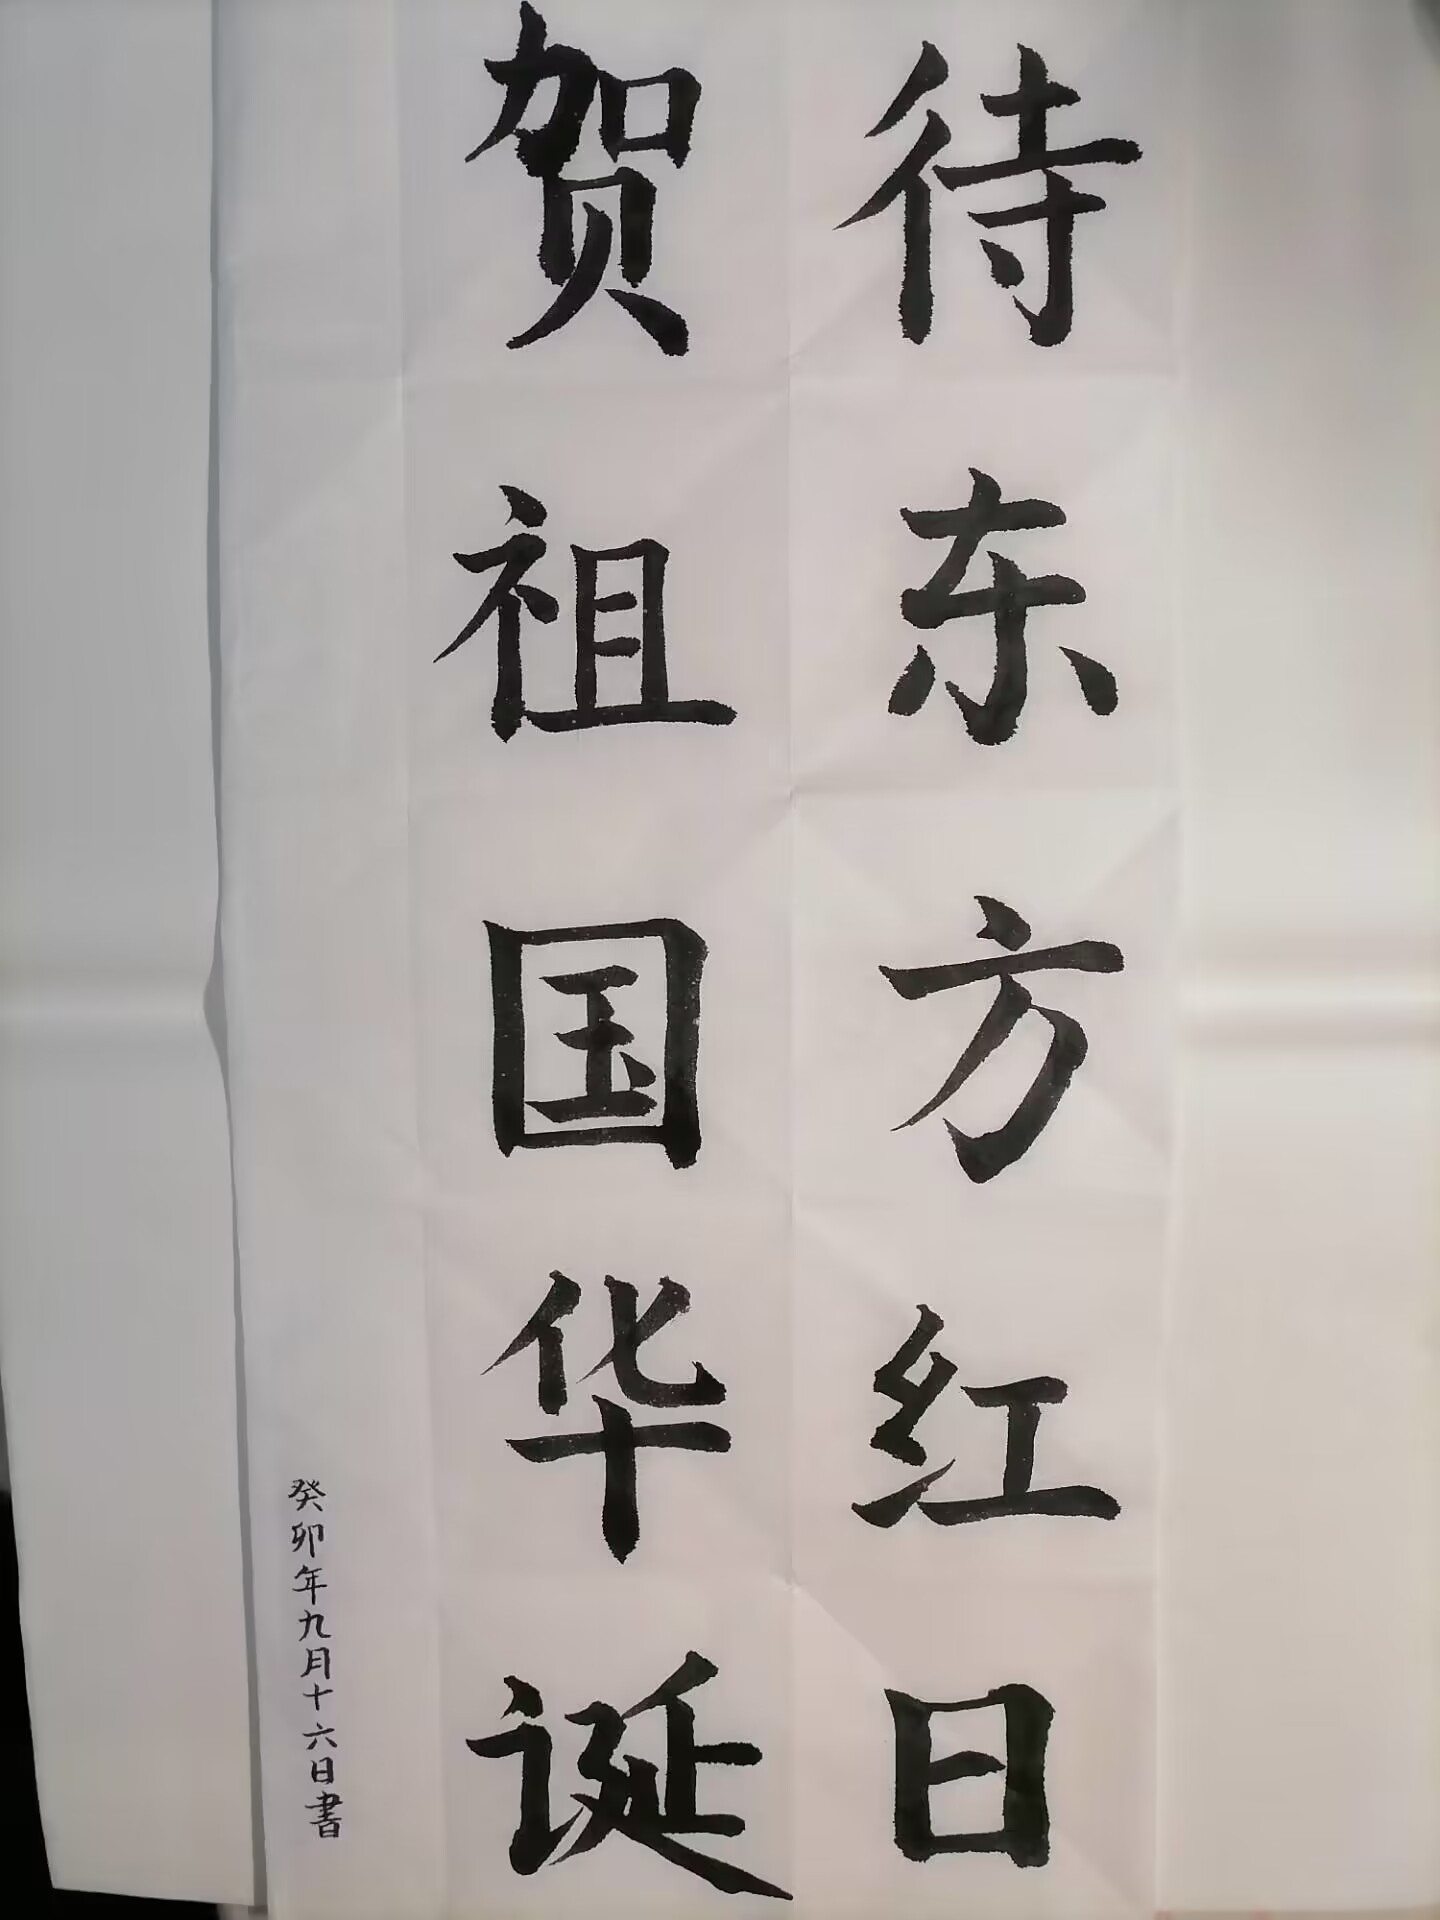 待东方红日
贺祖国华诞
癸卯年九月十六日書